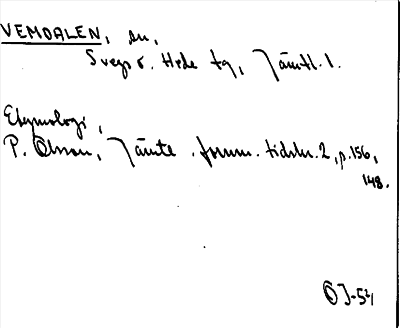 VEMDALEN, sn,
Svegs o. Hede tg, Jämtl. l.
Etymologi,
P. Olsson, Jämte. fornm. tidskr. 2, p. 156,
148.
ÖJ-54